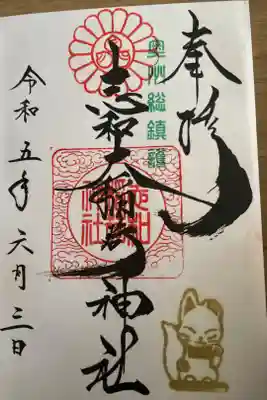 奉拝
奥州総鎮護
志和稲荷神社
令和五年六月三日